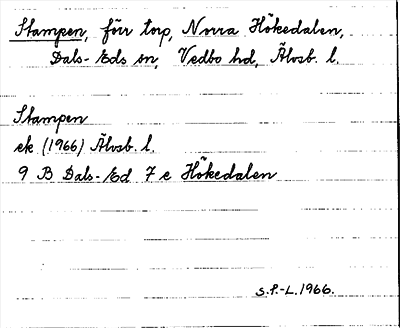 Stampen, förr torp, Norra Hökedalen,
Dals-Eds sn, Vedbo hd, Älvsb. l.
Stampen
ek (1966) Älvsb. l.
9 B Dals-Ed 7 e Hökedalen
S.F.-L. 1966.